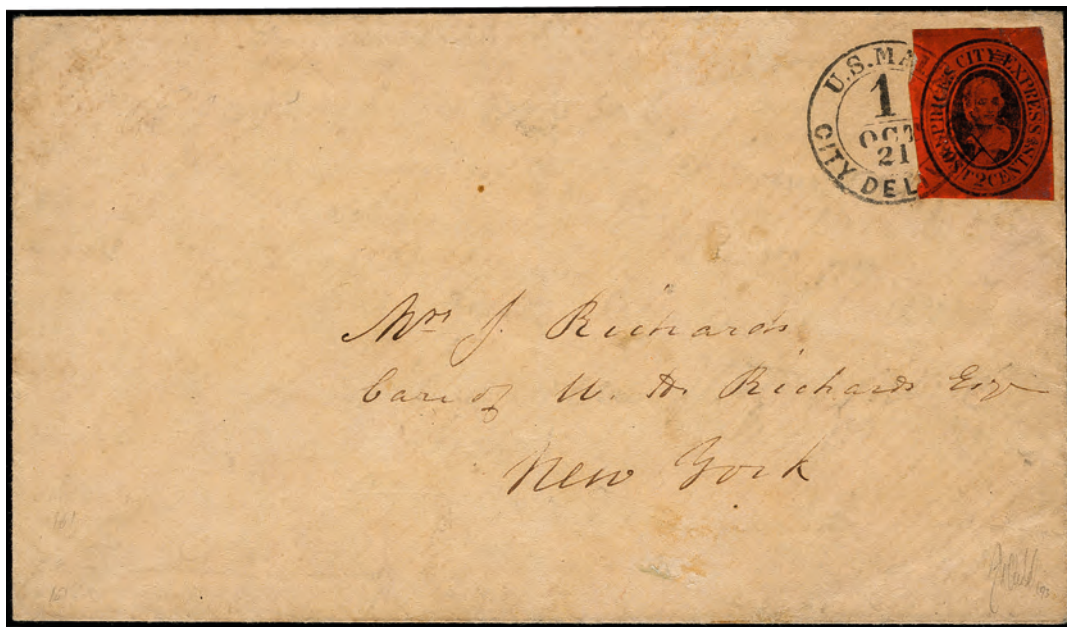 U.S.MA
1
OCT
21
CITY DEL
PRICE'S CITY EXPRESS
POST 2 CENTS
Mrs J. Richards
Care of W. H. Richards Esqr
New York
161
161